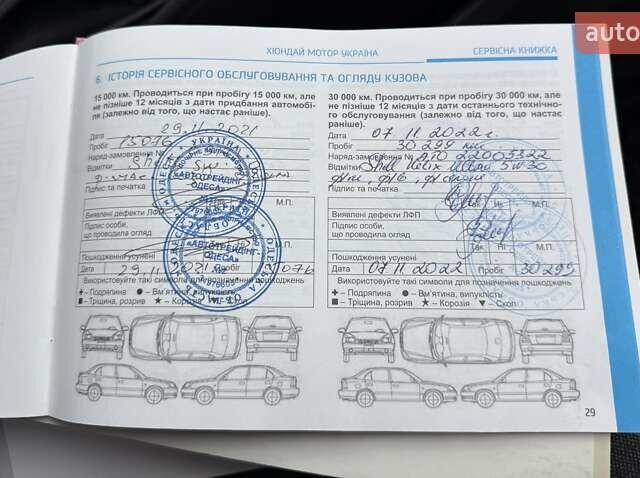 auto
ХЮНДАЙ МОТОР УКРАЇНА
СЕРВІСНА КНИЖКА
6. ІСТОРІЯ СЕРВІСНОГО ОБСЛУГОВУВАННЯ ТА ОГЛЯДУ КУЗОВА
15 000 км. Проводиться при пробігу 15 000 км, але
не пізніше 12 місяців з дати придбання автомобі-
ля (залежно від того, що настає раніше).
Дата 29.11.2021
Пробіг 15076
Наряд-замовлення №
Відмітки
Підпис та печатка
М.П.
Виявлені дефекти ЛФП
Підпис особи,
що проводила огляд
Пошкодження усунені
М.П.
Дата 29.11.2021 Пробіг 15076
Використовуйте такі символи для позначення пошкоджень
– Подряпина – Вм'ятина, випуклість
– Тріщина, розрив – Корозія
УКРАЇНА
«АВТОТРЕЙДІНГ-
ОДЕСА»
«АВТОТРЕЙДІНГ-
ОДЕСА»
30 000 км. Проводиться при пробігу 30 000 км, але
не пізніше 12 місяців з дати останнього технічно-
го обслуговування (залежно від того, що настає
раніше).
Дата 07.11.2022г.
Пробіг 30 299 км.
Наряд-замовлення № АТО 22005322
Відмітки Shell Helix Ultra 5W30
Підпис та печатка
Так Ні М.П.
Виявлені дефекти ЛФП
Підпис особи,
що проводила огляд
Так Ні
Пошкодження усунені
М.П.
Дата 07.11.2022 Пробіг 30299
Використовуйте такі символи для позначення пошкоджень
– Подряпина – Вм'ятина, випуклість
– Тріщина, розрив – Корозія – Скол
29